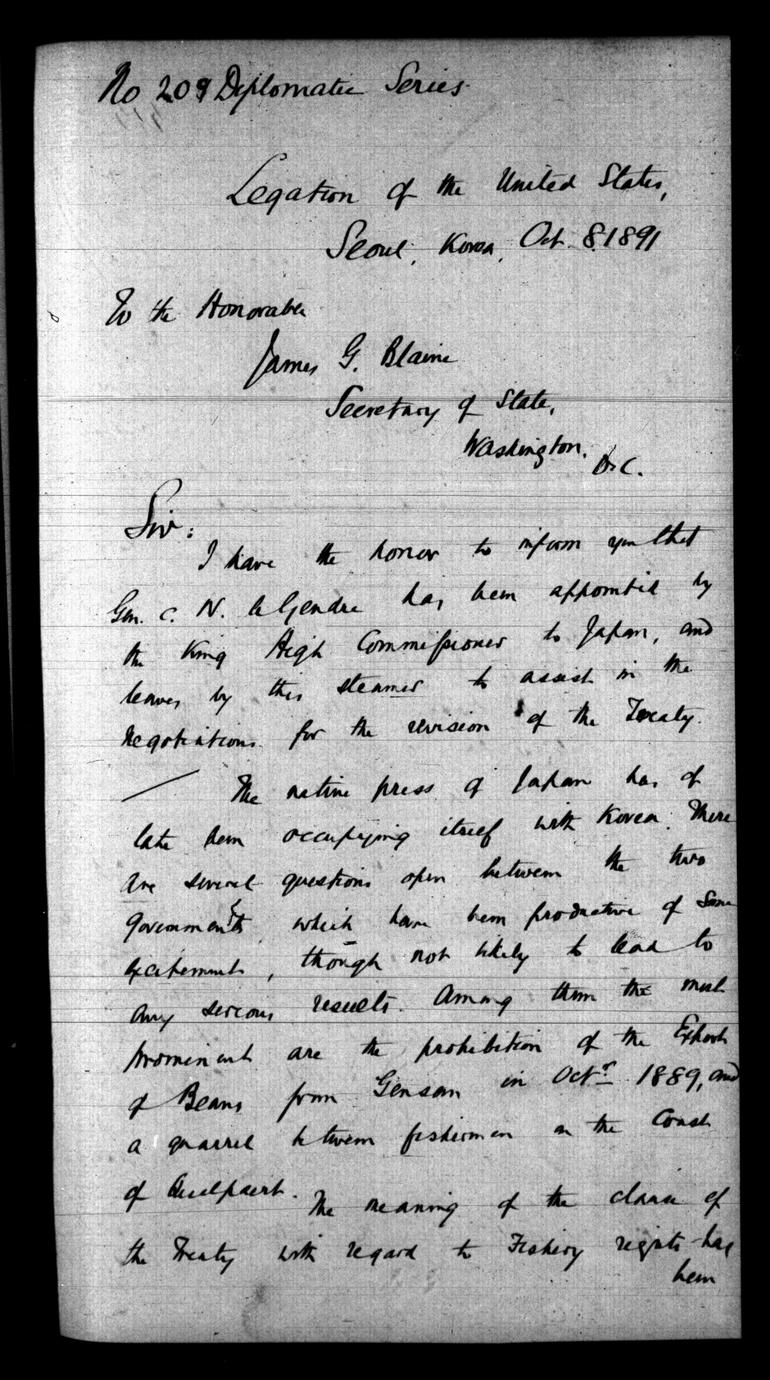 No 209 Diplomatic Series
Legation of the United States,
Seoul, Korea, Oct. 8. 1891
To the Honorable
James G. Blaine
Secretary of State,
Washington. D.C.
Sir:
I have the honor to inform you that
Gen. C. N. LeGendre has been appointed by
the King High Commissioner to Japan, and
leaves by this steamer to assist in the
negotiations for the revision of the Treaty.
The native press of Japan has of
late been occupying itself with Korea. There
are several questions open between the two
Governments, which have been productive of some
excitement, though not likely to lead to
any serious results. Among them the most
prominent are the prohibition of the Export
of Beans from Gensan in Octr. 1889, and
a quarrel between fishermen on the Coast
of Quelpaert. The meaning of the clause of
the Treaty with regard to Fishery rights has
been